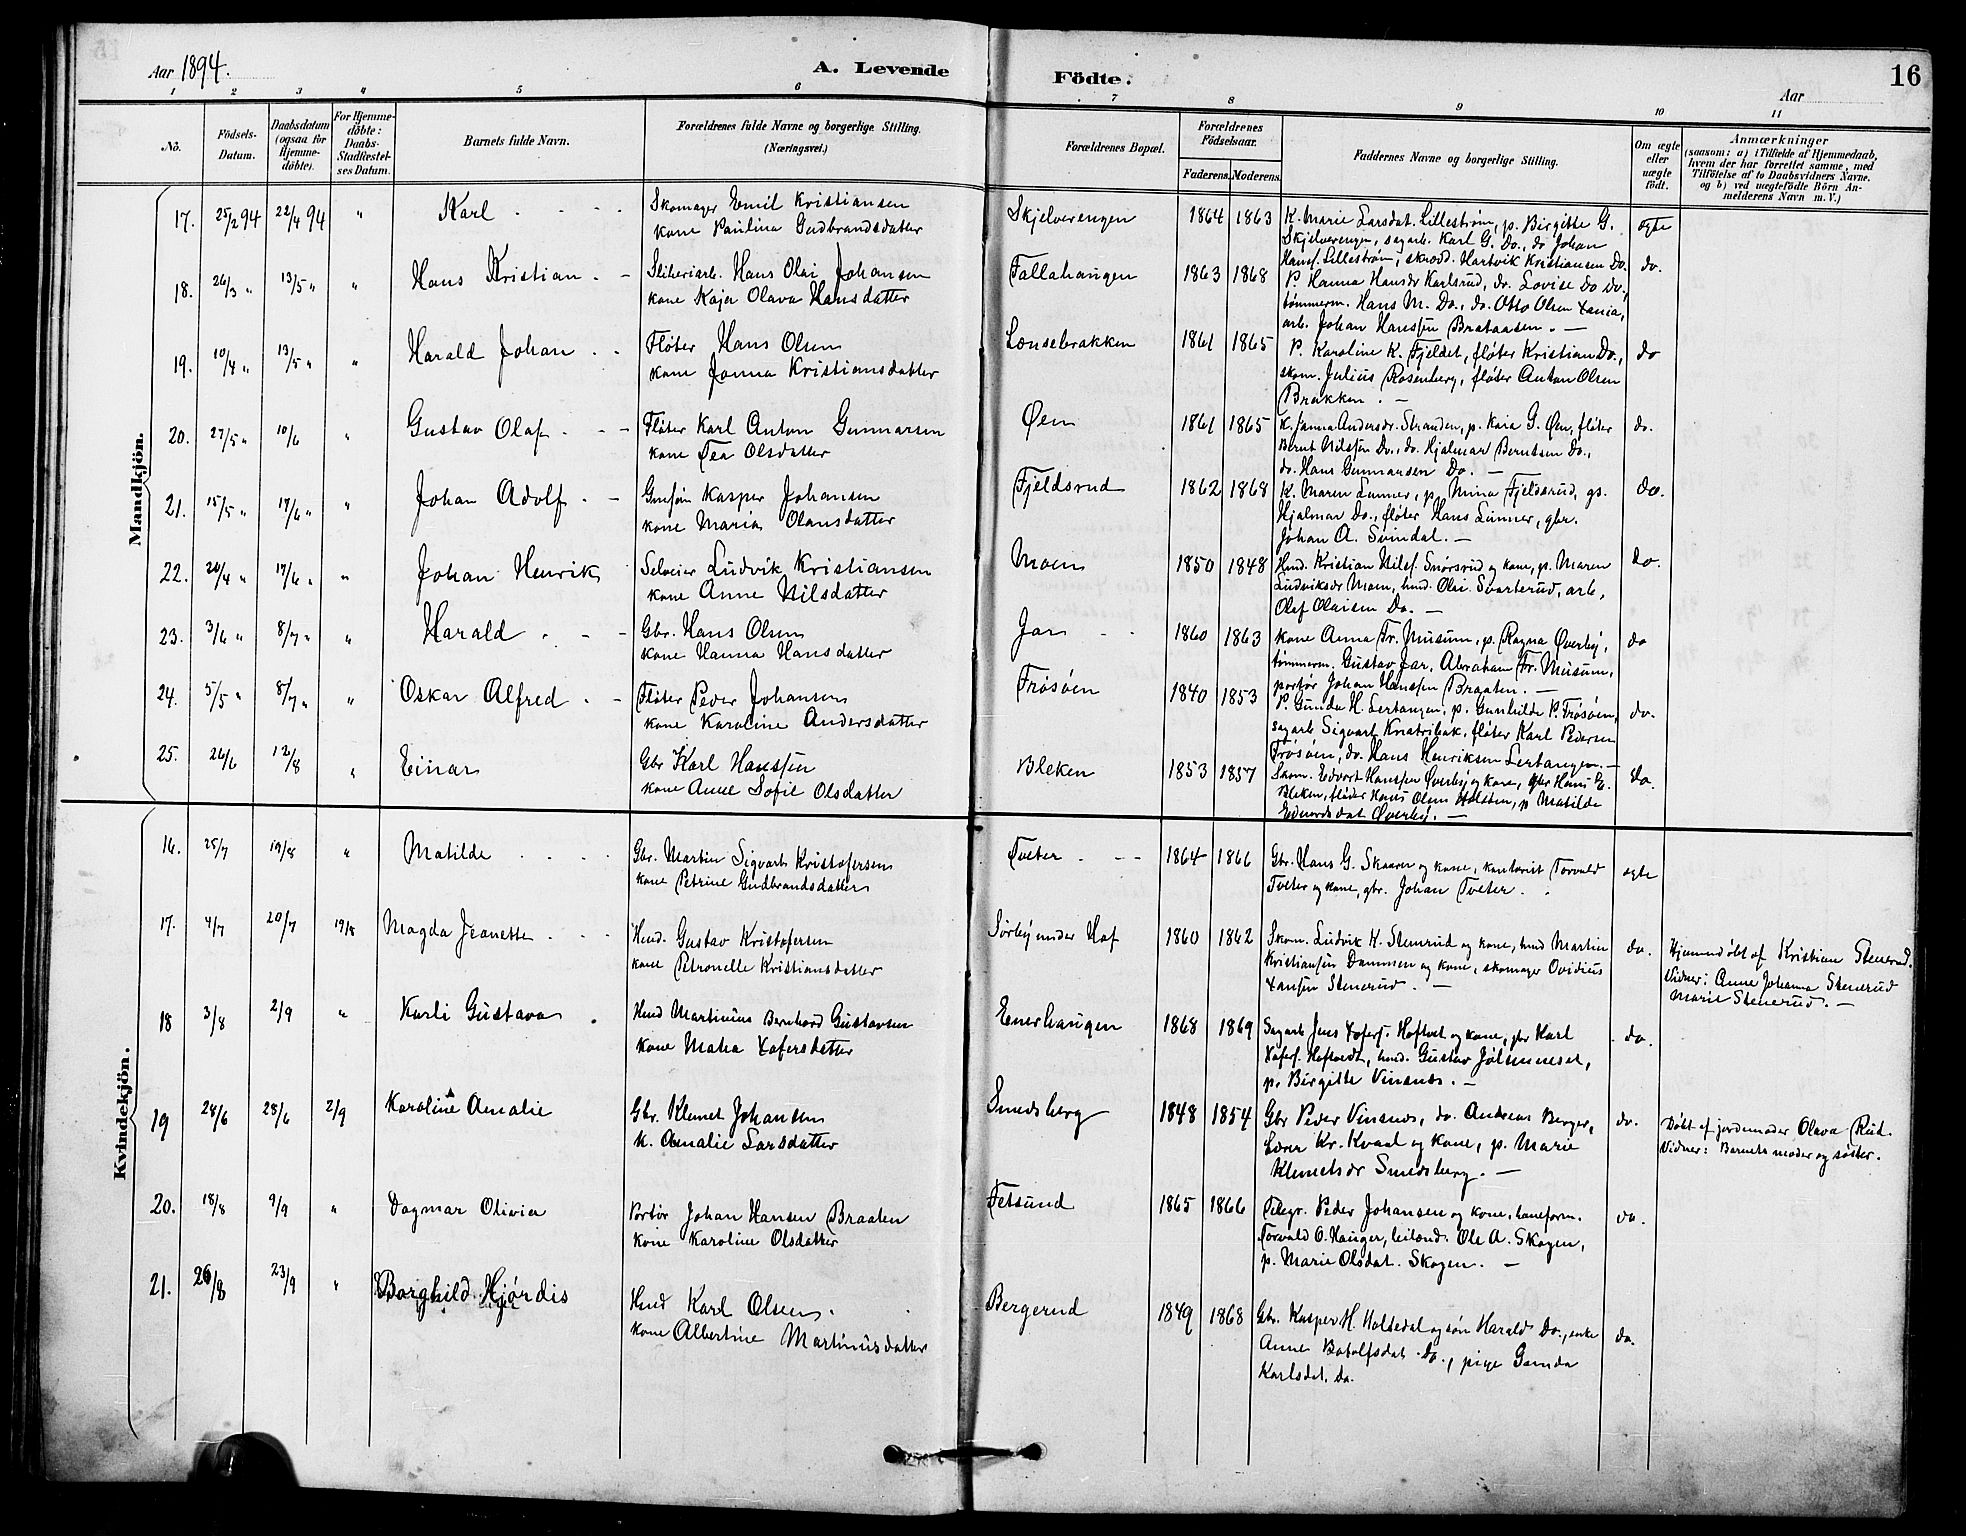 Aar 1894.
A. Levende Födte.
16
Aar
1 2 3 4 5 6 7 8 9 10 11
No.
Födsels-Datum.
Daabsdatum (ogsaa for Hjemmedöbte).
For Hjemmedöbte: Daabs-Stadfæstelses Datum.
Barnets fulde Navn.
Forældrenes fulde Navne og borgerlige Stilling. (Næringsvei.)
Forældrenes Bopæl.
Forældrenes Födselsaar.
Faderens. Moderens.
Faddernes Navne og borgerlige Stilling.
Om ægte eller uægte födt.
Anmærkninger
(saasom: a) i Tilfælde af Hjemmedaab,
hvem der har forrettet samme, med
Tilföielse af to Daabsvidners Navne.
og b) ved uægtefödte Börn Anmelderens Navn m. V.)
Mandkjön.
17. 25/2 94 22/4 94 " Karl
Skomager Emil Kristiansen
kone Paulina Gudbrandsdatter
Skjelverengen 1864 1863
K. Marie Larsdat. Lillestrøm, p. Birgitte G.
Skjelverengen, sagarb. Karl G. Do., do Johan
Hansf. Lillestrøm, skrædd. Hartvik Kristiansen Do.
ægte
18. 26/3 " 13/5 " " Hans Kristian
Sliberiarb. Hans Olai Johansen
kone Kaja Olava Hansdatter
Fallahaugen 1863 1868
P. Hanna Hansdr Karlsrud, do. Lovise Do Do,
tømmerm. Hans M. Do., do. Otto Olsen Xania,
arb. Johan Hanssen Brataasen. —
do.
19. 10/4 " 13/5 " " Harald Johan
Fløter Hans Olsen
kone Janna Kristiansdatter
Lænsebrakken 1861 1865
P. Karoline K. Fjeldet, fløter Kristian Do.,
skom. Julius Rosenberg, fløter Anton Olsen
Brakken. —
do
20. 27/5 " 10/6 " Gustav Olaf
Fløter Karl Anton Gunnarsen
kone Tea Olsdatter
Øen 1861 1865
K. Janna Andersdr. Stranden, p. Kaia G. Øen, fløter
Bernt Nilssen Do., do. Hjalmar Berntsen Do.,
do. Hans Gunnarsen Do. —
do.
21. 15/5 " 17/6 " " Johan Adolf
Kasper Johansen
kone Maria Olausdatter
Fjeldsrud 1862 1868
K. Maren Lunner, p. Mina Fjeldsrud, gs.
Hjalmar Do., fløter Hans Lunner, gbr.
Johan A. Svindal. —
do.
22. 20/4 " 17/6 " " Johan Henrik
Selveier Ludvik Kristiansen
kone Anne Nilsdatter
Moen 1850 1848
Hmd. Kristian Nilsf. Snørsrud og kone, p. Maren
Ludviksdr Moen, hmd. Olai Svarterud, arb,
Olaf Olaisen Do. —
do.
23. 3/6 " 8/7 " " Harald
Gbr. Hans Olsen
kone Hanna Hansdatter
Jar 1860 1863
kone Anna Fr. Musum, p. Ragna Øverby,
tømmerm. Gustav Jar, Abraham Fr. Musum,
portør Johan Hanssen Braaten. —
do
24. 5/5 " 8/7 " " Oskar Alfred
Fløter Peder Johansen
kone Karoline Andersdatter
Frøsøen 1840 1853
P. Gunda H. Lertangen, p. Gunhilde P. Frøsøen,
sagarb Sigvart Knatribak, fløter Karl Pedersen
Frøsøen, do. Hans Henriksen Lertangen. —
do.
25. 26/6 12/8 " Einar
Gbr Karl Hanssen
kone Anne Sofie Olsdatter
Bleken 1853 1857
Skom. Edvart Hanssen Øverby og kone, gbr Hans E.
Bleken, fløder Hans Olsen Holsten, p Matilde
Edvardsdat Øverby. —
do.
Kvindekjön.
16. 25/7 19/8 " Matilde
Gbr. Martin Sigvart Kristofersen
kone Petrine Gudbrandsdatter
Tveter 1864 1866
Gbr. Hans G. Skaarer og kone, kontorist Torvald
Tveter og kone, gbr. Johan Tveter.
ægte
17. 4/7 20/7 19/8 Magda Jeanette
Hmd. Gustav Kristofersen
kone Petronelle Kristiansdatter
Sørby under Hof 1860 1862
Skom. Ludvik K. Stenerud og kone, hmd Martin
Kristiansen Dammen og kone, skomager Ovidius
Xansen Stenerud. —
do.
Hjemmedøbt af Kristian Stenerud.
Vidner: Anne Johanna Stenerud
Marie Stenerud. —
18 3/8 2/9 " Karli Gustava
Hmd Martinius Bernhard Gustavsen
kone Matea Xofersdatter
Enerhaugen 1868 1869
Sagarb Jens Xofersf. Hoftvet og kone, gbr Karl
Xofersf. Hoftvedt, hmd. Gustav
p. Birgitte Vinsnes. —
do.
19 28/6 28/6 2/9 Karoline Amalie
Gbr. Klemet Johansen
k. Amalie Larsdatter
Smedsberg 1848 1854
Gbr Peder Vinsnes, do. Andreas Berger,
Lærer Kr. Kvaal og kone, p. Marie
Klemetsdr Smedsberg. —
do.
Døbt af jordemoder Olava Rud.
Vidner: Barnets moder og søster.
20. 18/8 9/9 " Dagmar Olivia
Portør Johan Hansen Braaten
kone Karoline Olsdatter
Fetsund 1865 1866
Telegr. Peder Johansen og kone, baneform.
Torvald O. Hauger, leilænd. Ole A. Skogen,
p. Marie Olsdat. Skogen. —
do.
21. 26/8 23/9 " Borghild Hjørdis
Hmd Karl Olsen.
kone Albertine Martinusdatter
Bergerud 1849 1868
Gbr. Kasper H. Holtedal og søn Harald Do., enke
Anne Botolfsdat. do., pige Gunda
Karlsdat. Do.
do.